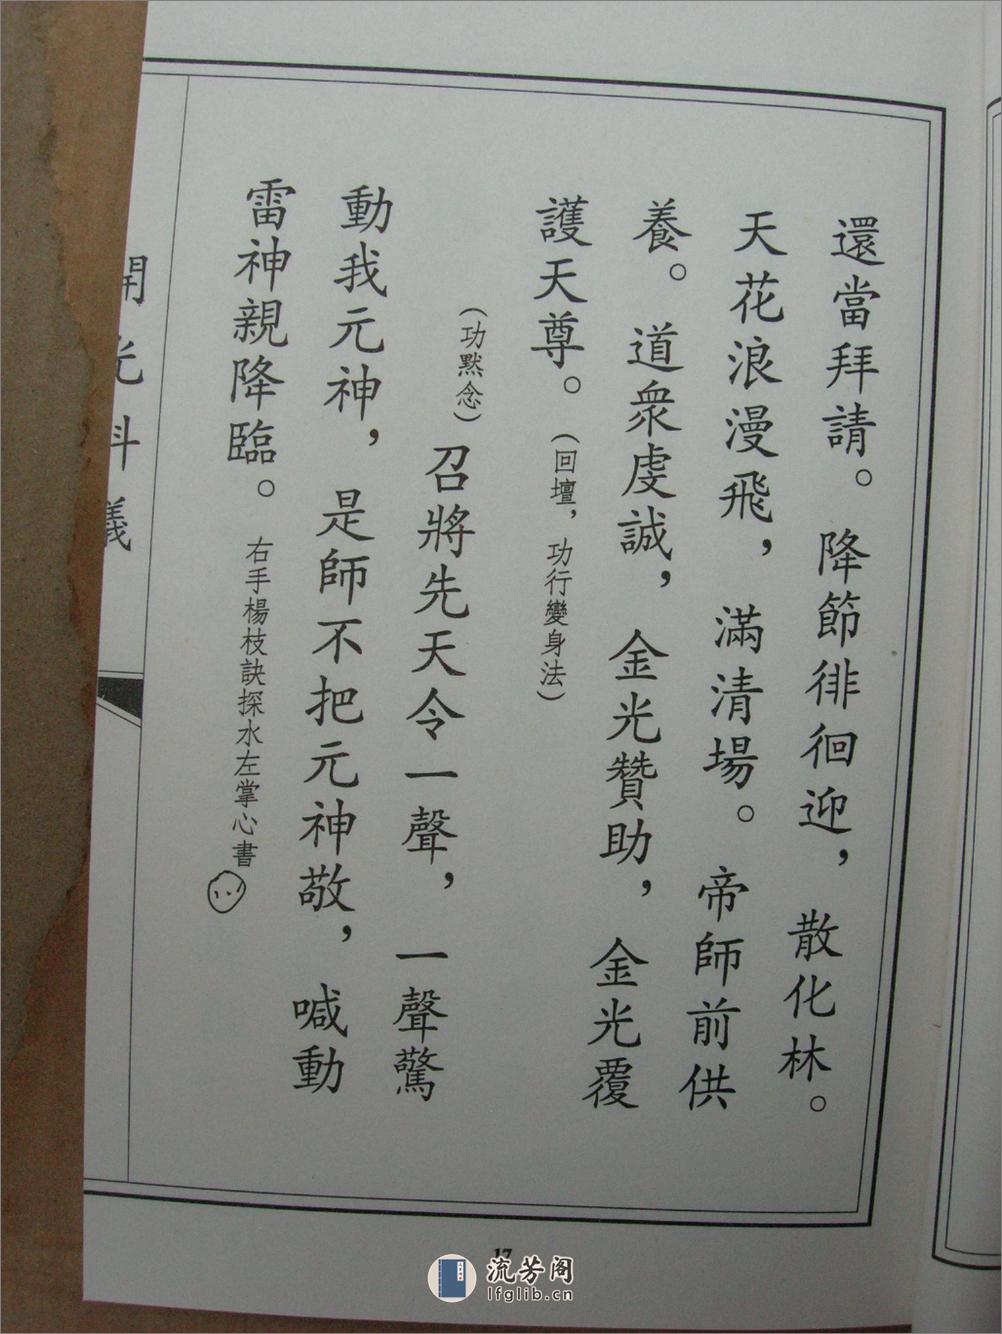 還當拜請。降節徘徊迎，散化林。
天花浪漫飛，滿清場。帝師前供
養。道衆虔誠，金光贊助，金光覆
護天尊。（回壇，功行變身法）
（功默念）召將先天令一聲，一聲驚
動我元神，是師不把元神敬，喊動
雷神親降臨。右手楊枝訣探水左掌心書
開光科儀
17
流芳阁
lfglib.cn